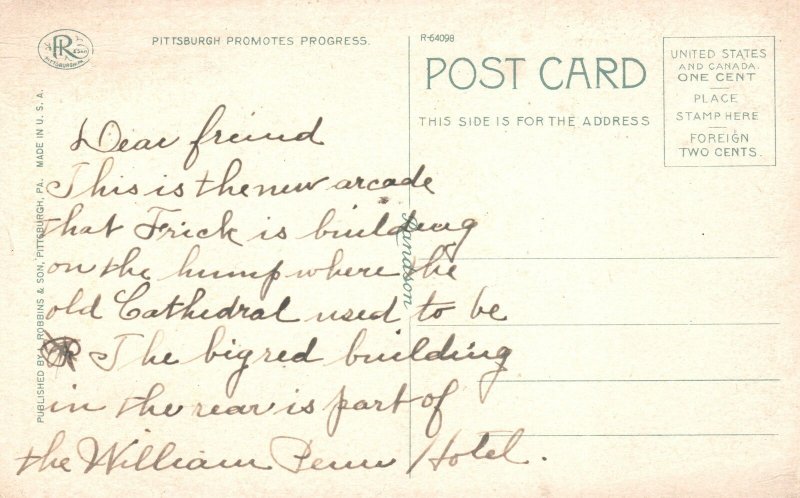 PR
& SON
PITTSBURGH PA.
PITTSBURGH PROMOTES PROGRESS.
R-64098
POST CARD
THIS SIDE IS FOR THE ADDRESS
UNITED STATES
AND CANADA.
ONE CENT
PLACE
STAMP HERE
FOREIGN
TWO CENTS.
PUBLISHED BY I. ROBBINS & SON, PITTSBURGH, PA. MADE IN U. S. A.
Dear freind
This is the new arcade
that Frick is building
on the hump where the
old Cathedral used to be
The big red building
in the rear is part of
the William Penn Hotel.